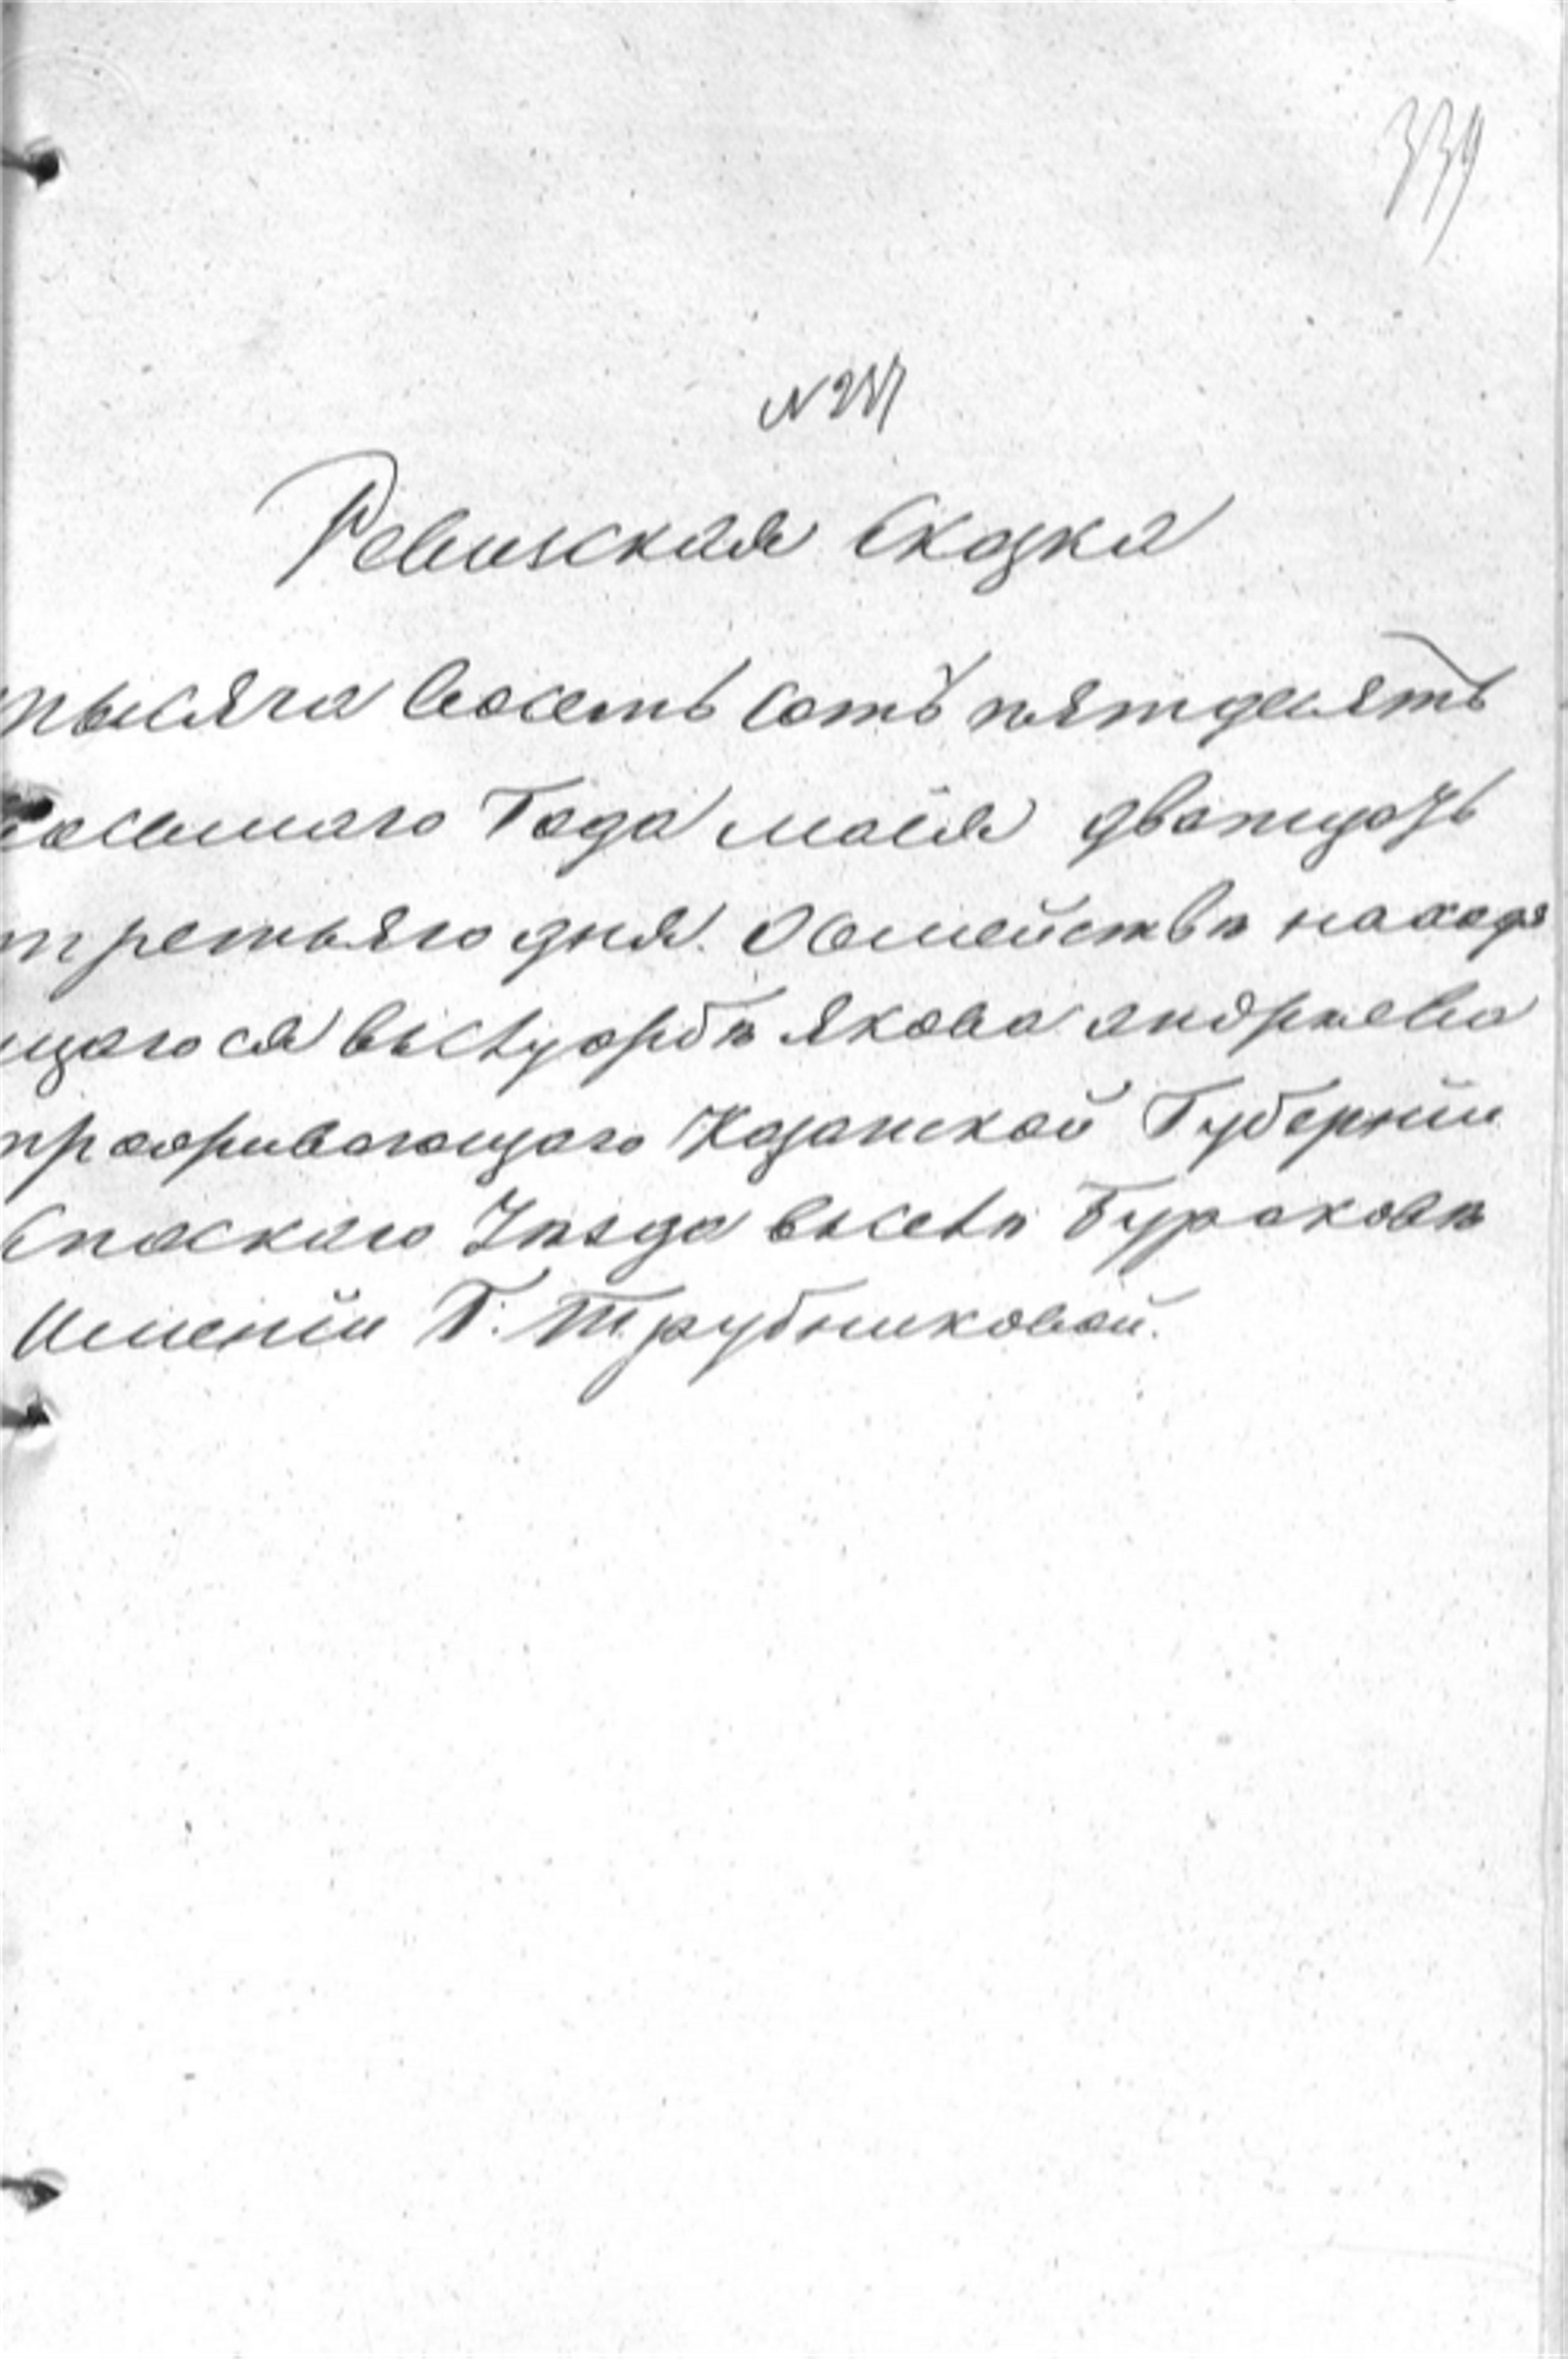 339
Ревизская Сказка
тысяча восемь сотъ пятдесятъ
восьмаго Года маія дватцать
третьяго дня. О семействѣ находя
щагося въслужбѣ Якова андрѣева
проживающаго Казанской Губерніи
Спаскаго Уѣзда въселѣ Бураковѣ
Имении Г. Трубниковой.